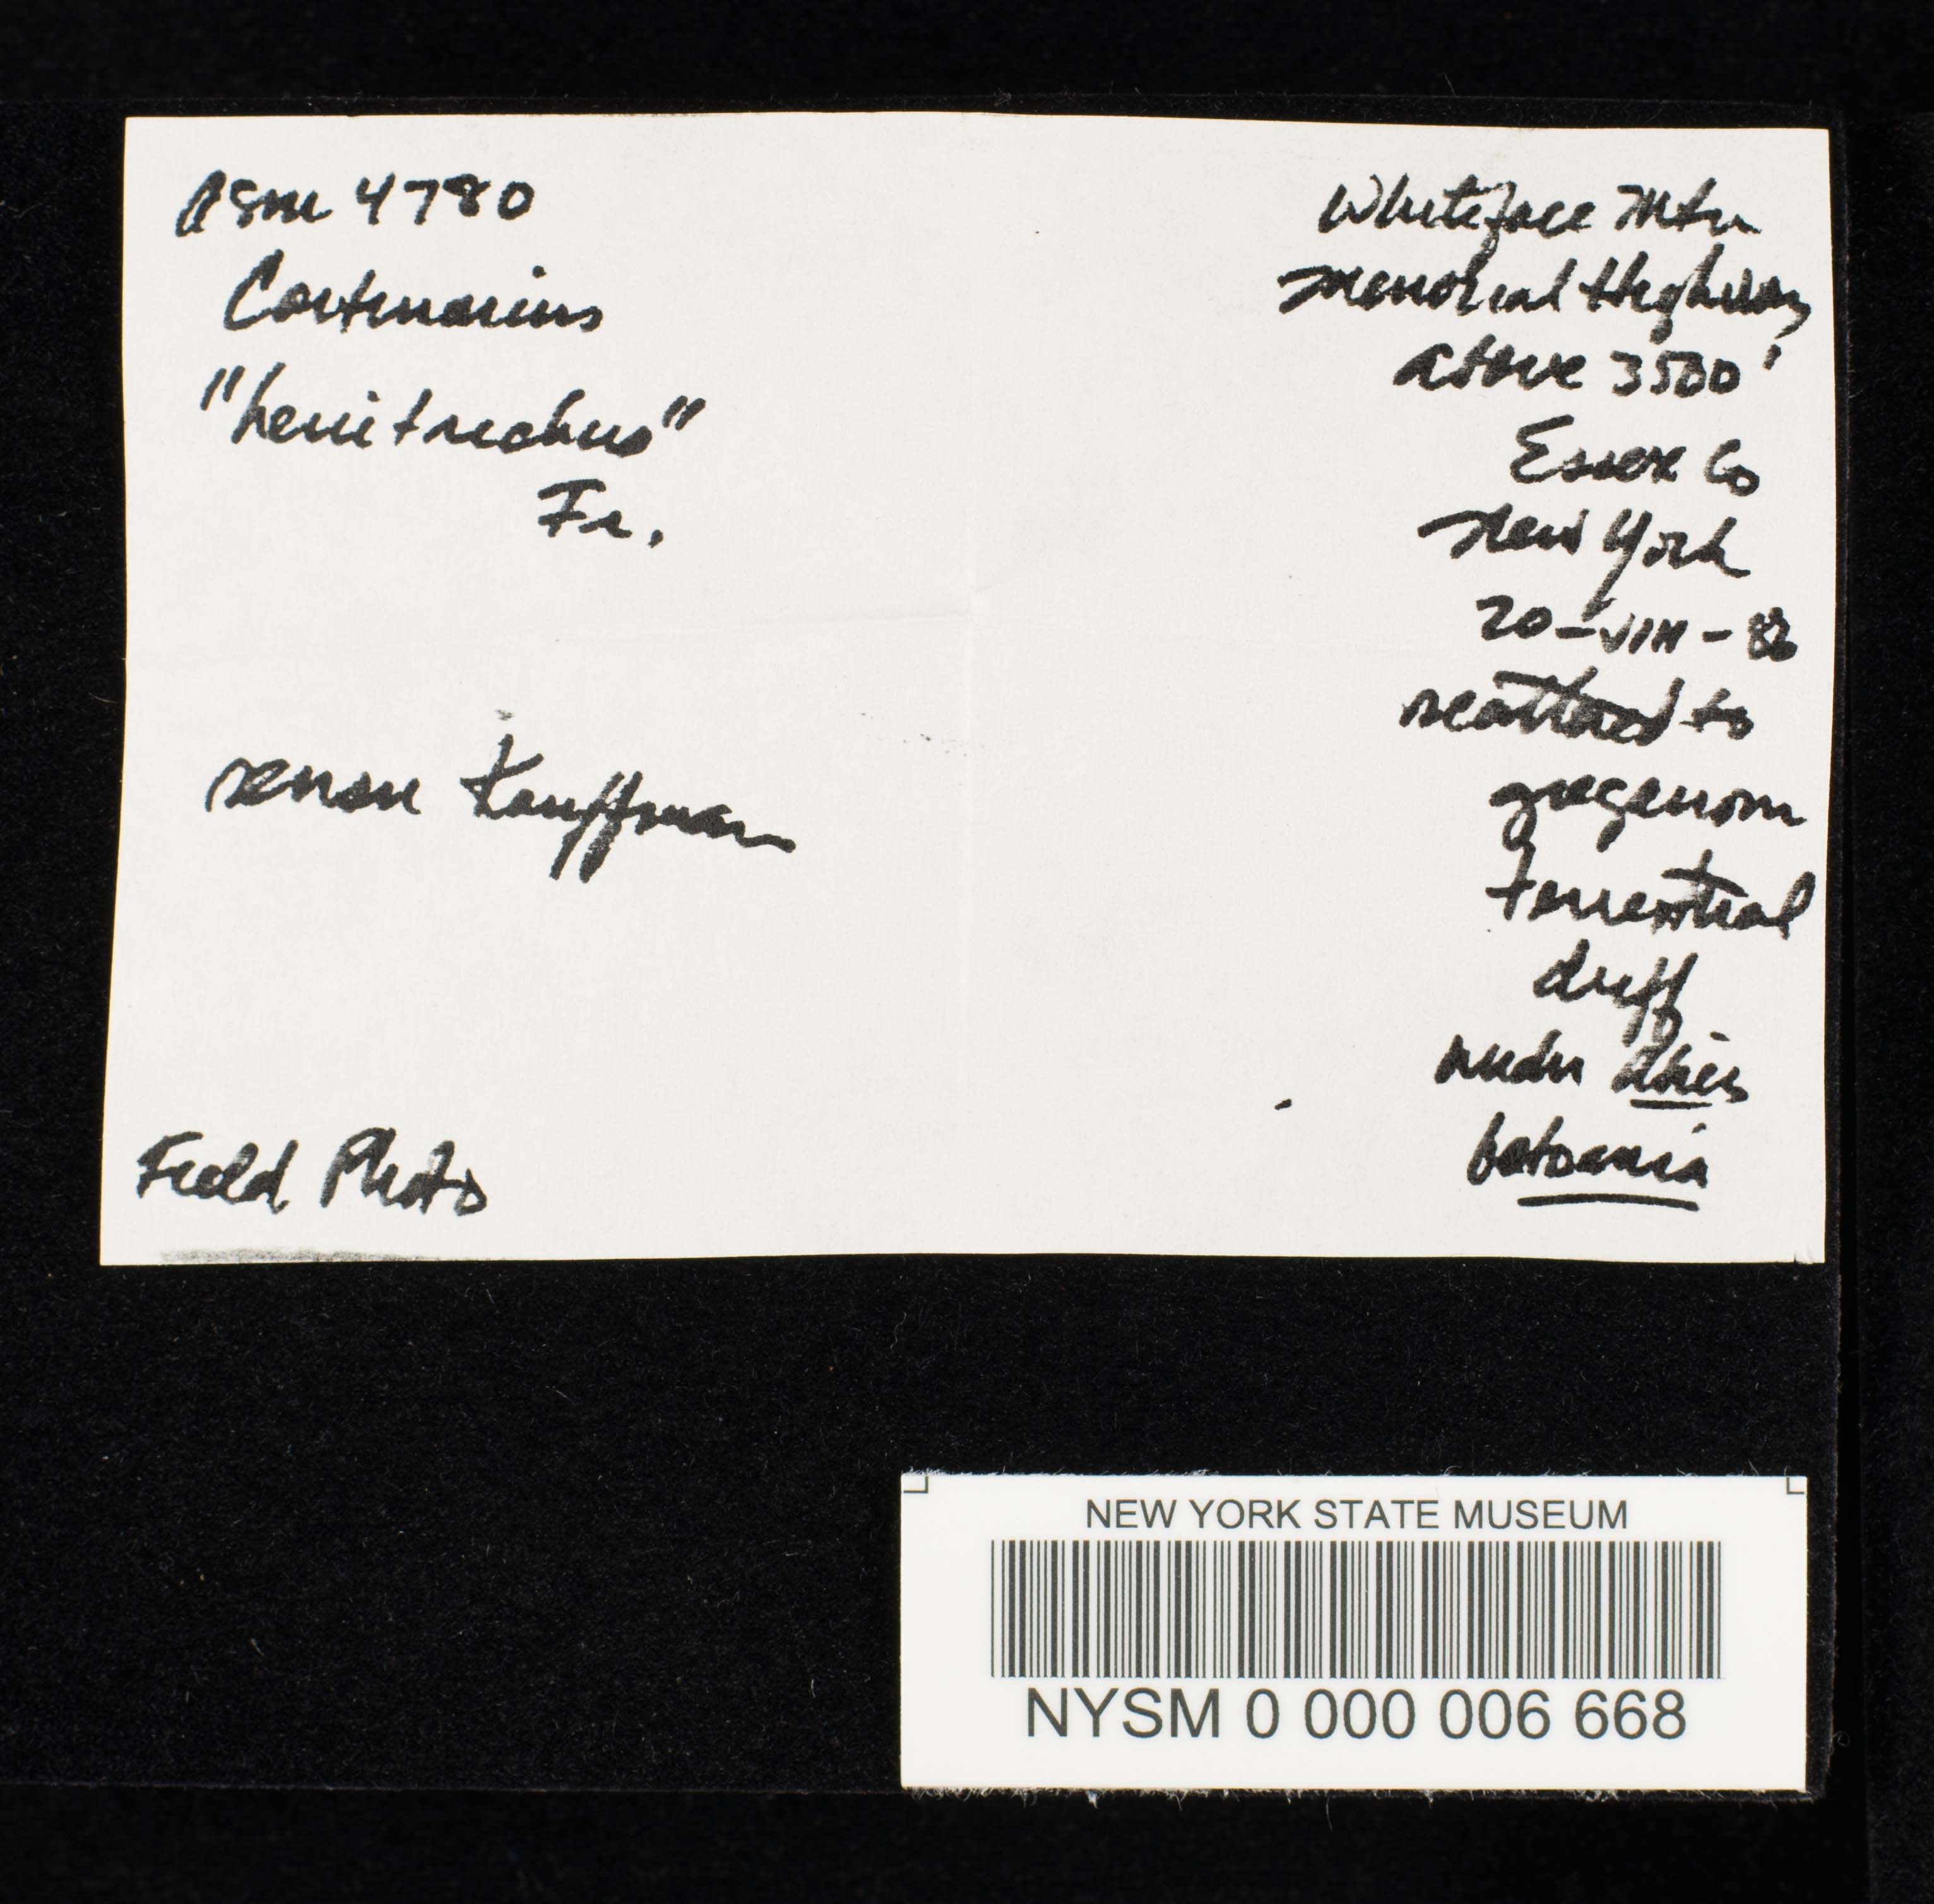 ASM 4780
Cortinarius
"hemitrichus"
Fr.
sensu Kauffman
Field Photo
Whiteface Mtn
Memorial Highway
above 3500'
Essex Co
New York
20-VIII-82
scattered to
gregarious
terrestrial
duff
under Abies
balsamea
NEW YORK STATE MUSEUM
NYSM 0 000 006 668